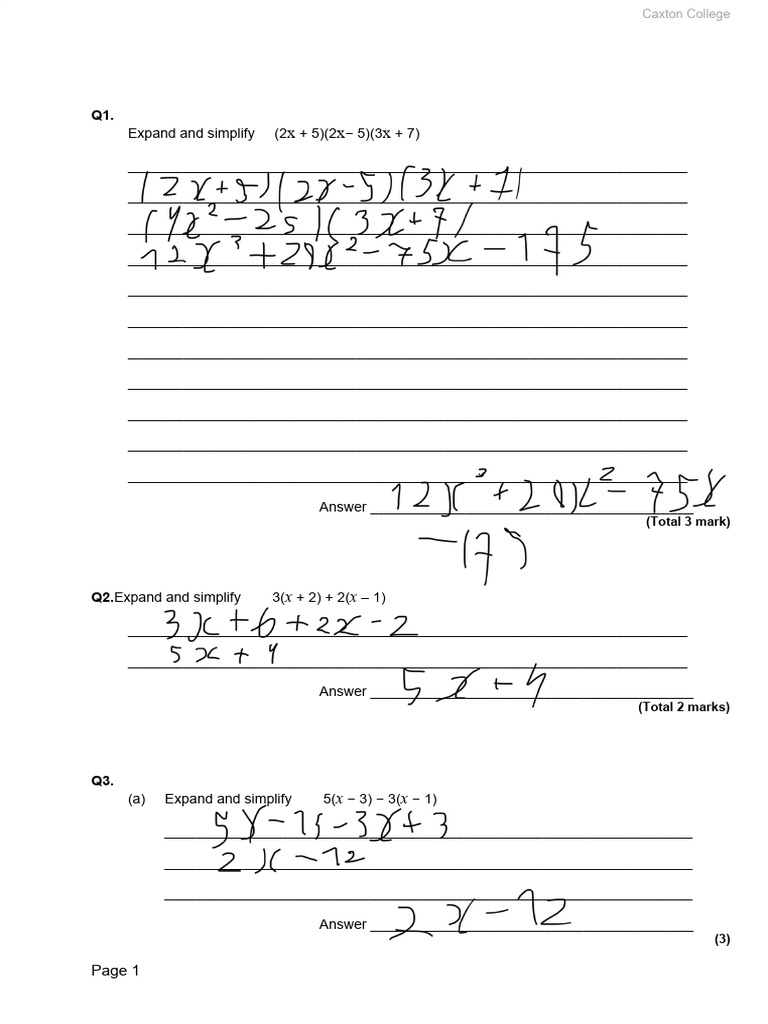 Caxton College
Q1.
Expand and simplify (2x + 5)(2x− 5)(3x + 7)
(2x+5)(2x-5)(3x+7)
(4x² - 25)(3x+7)
12x³ + 28x² - 75x - 175
Answer 12x³ + 28x² - 75x
(Total 3 mark)
-175
Q2.Expand and simplify 3(x + 2) + 2(x – 1)
3x + 6 + 2x - 2
5x + 4
Answer 5x + 4
(Total 2 marks)
Q3.
(a) Expand and simplify 5(x − 3) − 3(x − 1)
5x - 15 - 3x + 3
2x - 12
Answer 2x - 12
(3)
Page 1